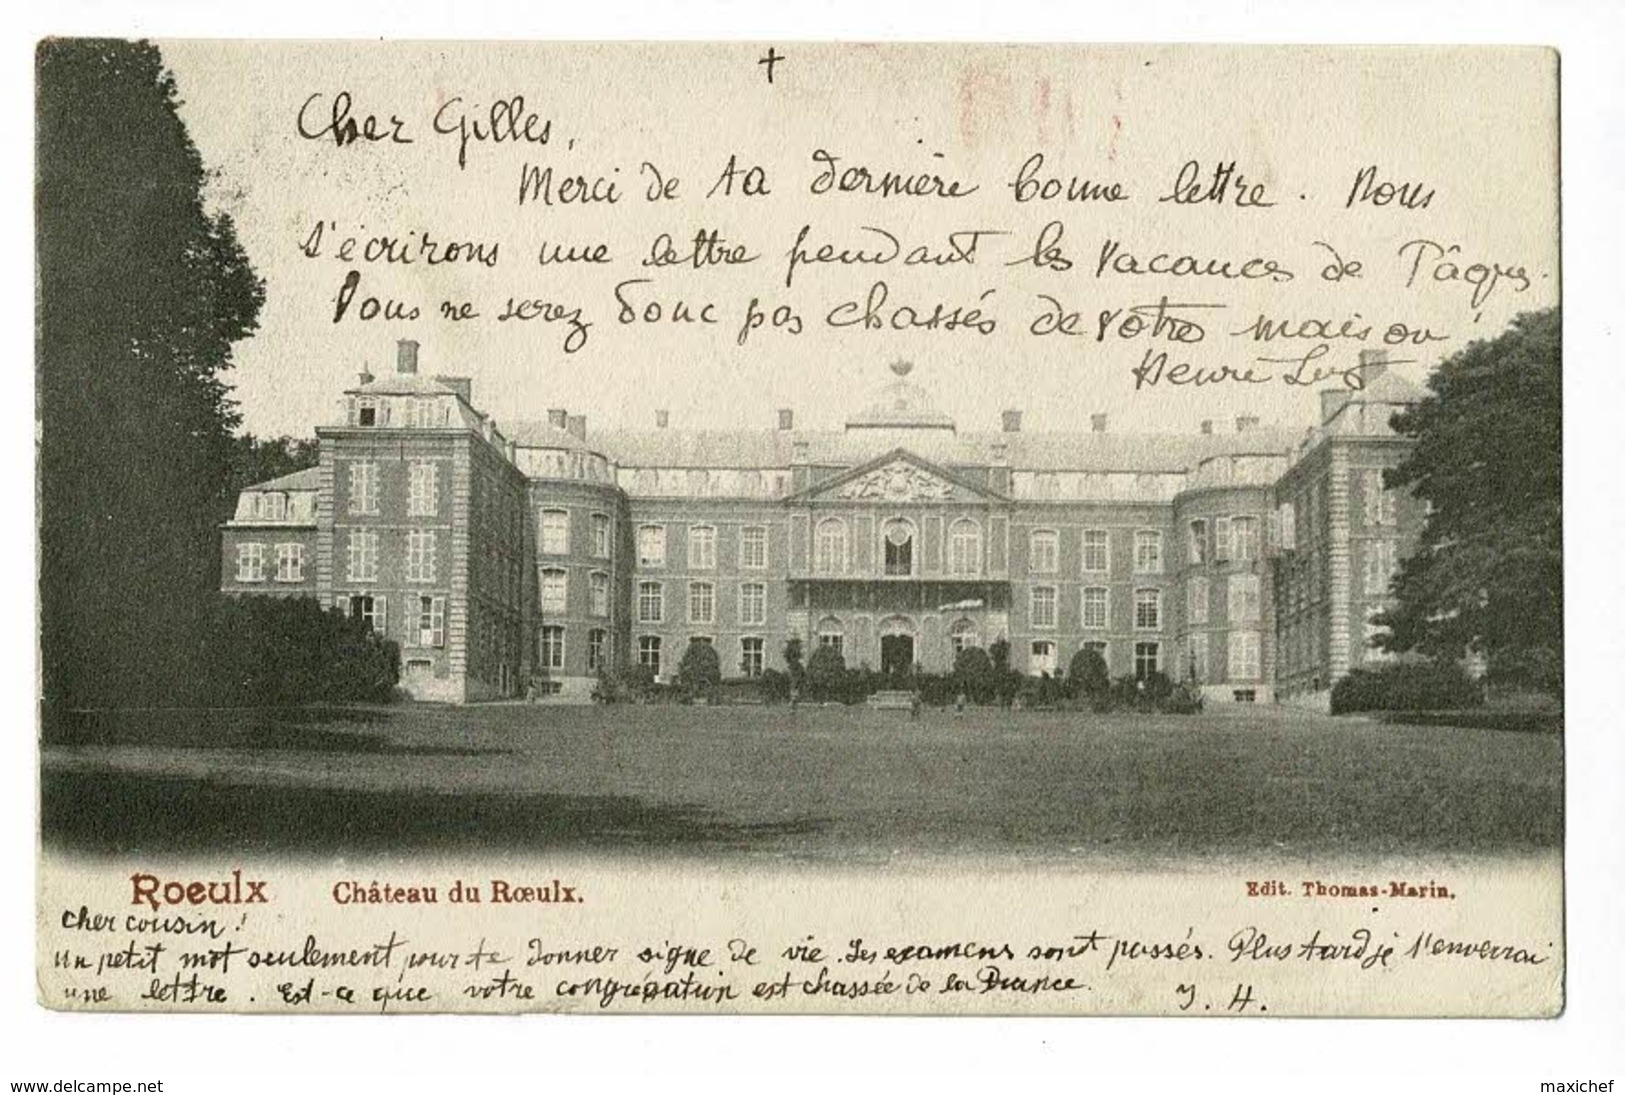 +
Cher Gilles,
Merci de ta dernière bonne lettre. Nous
t'écrirons une lettre pendant les vacances de Pâques.
Vous ne serez donc pas chassés de votre maison!
Henri
Roeulx Château du Rœulx. Edit. Thomas-Marin.
Cher cousin!
Un petit mot seulement pour te donner signe de vie. Les examens sont passés. Plus tard je t'enverrai
une lettre. Est-ce que votre congrégation est chassée de la France. J. H.
www.delcampe.net maxichef